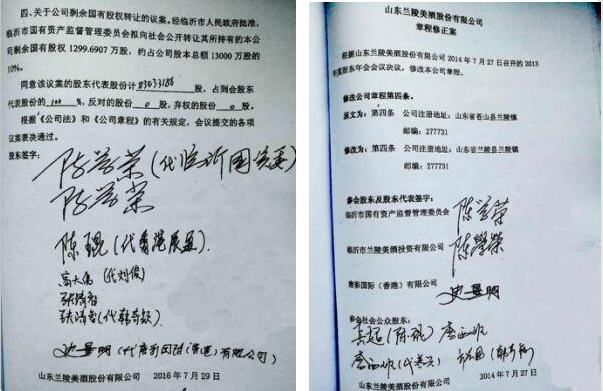 四、关于公司剩余国有股权转让的议案。经临沂市人民政府批准,
临沂市国有资产监督管理委员会拟向社会公开转让其所持有的本公
司剩余国有股权 1299.6907 万股，约占公司股本总额 13000 万股的
10%。
同意该议案的股东代表股份计 83033186 股，占到会股东
代表股份的 100 %，反对的股份 0 股，弃权的股份 0 股。
根据《公司法》和《公司章程》的有关规定，会议提交的各项
议案表决通过。
股东签字：
陈学荣(代临沂国资委)
陈学荣
陈琨(代香港
高大伟(代刘俊)
张清智
张清智(代韩奇
史曼明(代唐彩国际(香港)有限公司)
山东兰陵美酒股份有限公司 2016 年 7 月 29 日
山东兰陵美酒股份有限公司
章程修正案
根据山东兰陵美酒股份有限公司 2014 年 7 月 27 日召开的 2013
年度股东年会会议决议，修改本公司章程。
修改公司章程第四条。
原文为：第四条 公司注册地址：山东省苍山县兰陵镇
邮编：277731
修改为：第四条 公司注册地址：山东省兰陵县兰陵镇
邮编：277731
参会股东及股东代表签字：
临沂市国有资产监督管理委员会 陈学荣
临沂市兰陵美酒投资有限公司 陈学荣
唐彩国际（香港）有限公司
史曼明
参会社会公众股东：
山东兰陵美酒股份有限公司 2014 年 7 月 27 日